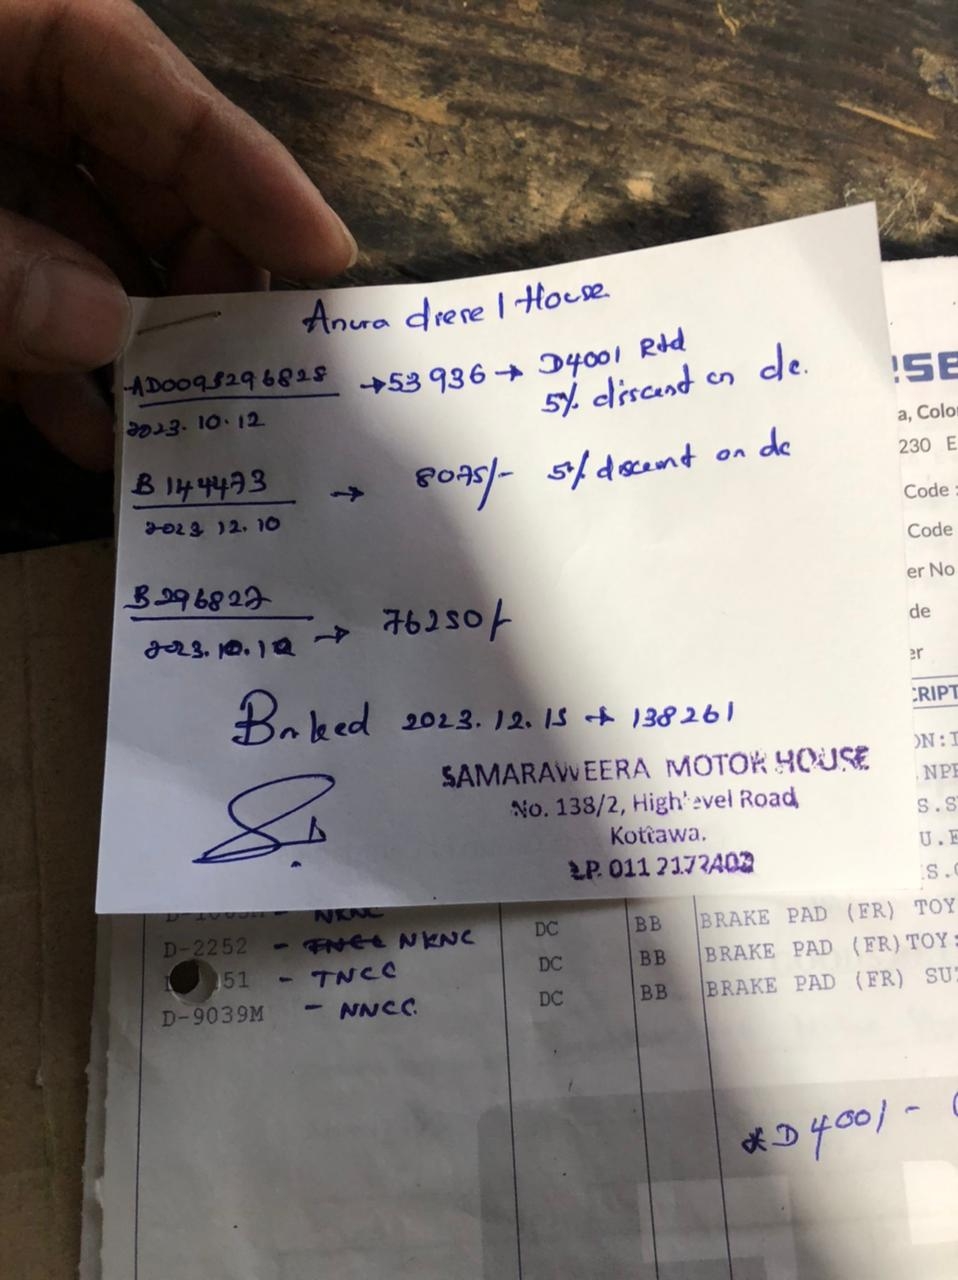 Anura diesel House
AD0093296828 → 53936 → D4001 Rtd
2023.10.12 5% discount on dc.
B 144473 → 8075/- 5% discount on dc
2023 12.10
B296827
2023.10.12 → 76250/-
2023.12.15 → 138261
SAMARAWEERA MOTOR HOUSE
No. 138/2, Highlevel Road,
Kottawa.
011 2172402
a, Colo
230 E
Code :
Code
er No
de
er
CRIPT
ON:I
NPR
S.S
U.E
S.
NKNC
D-2252 - NKNC DC BB BRAKE PAD (FR) TOY
51 - TNCC DC BB BRAKE PAD (FR)TOY:
D-9039M - NNCC. DC BB BRAKE PAD (FR) SU
*D4001 -